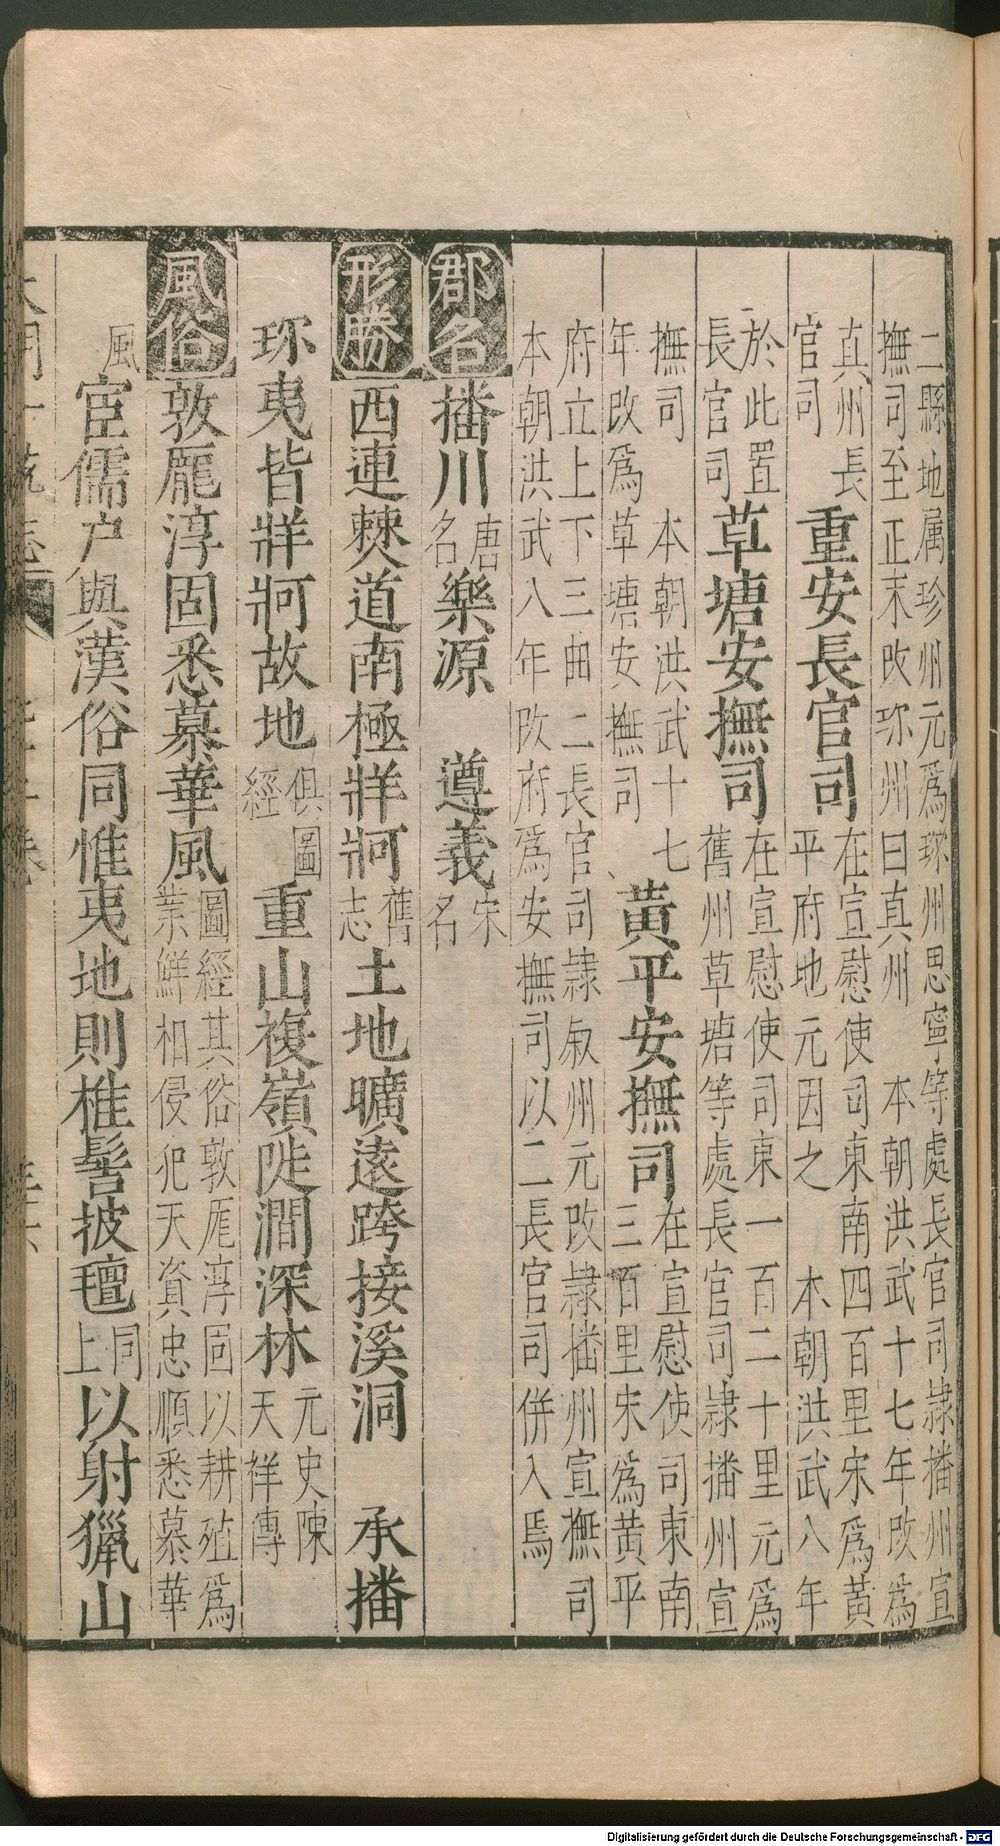 二縣地属珍州元爲珎州思寧等處長官司隷播州宣
撫司至正末改珎州曰真州 本朝洪武十七年改爲
真州長官司
重安長官司
在宣慰使司東南四百里宋爲黄
平府地元因之 本朝洪武八年
於此置長官司
草塘安撫司
在宣慰使司東一百二十里元爲
舊州草塘等處長官司隷播州宣
撫司 本朝洪武十七
年改爲草塘安撫司
黄平安撫司
在宣慰使司東南
三百里宋爲黄平
府立上下三曲二長官司隷叙州元改隷播州宣撫司
本朝洪武八年改府爲安撫司以二長官司併入焉
郡名 播川 唐名 樂源 遵義 宋名
形勝 西連僰道南極牂牁 舊志 土地曠遠跨接溪洞 承播
珎夷皆牂牁故地 俱圖經 重山複嶺陡澗深林 元史陳天祥傳
風俗 敦厖淳固悉慕華風 圖經其俗敦厖淳固以耕殖爲業鮮相侵犯天資忠順悉慕華
風 宦儒户與漢俗同惟夷地則椎髻披氊 同上 以射獵山
Digitalisierung gefördert durch die Deutsche Forschungsgemeinschaft - DFG